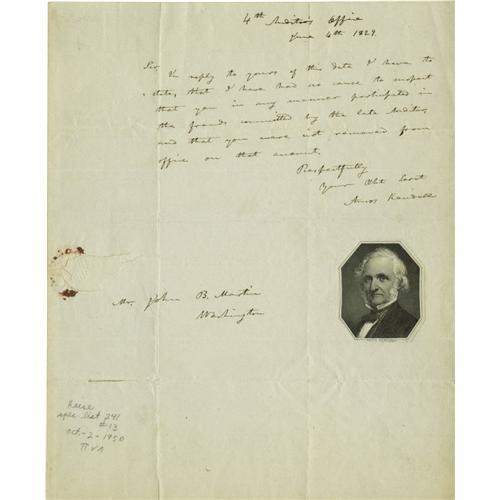 4th Auditor's Office
June 4th 1829.
Sir, In reply to yours of this date I have to
state, that I have had no cause to suspect
that you in any manner participated in
the frauds committed by the late Auditor,
and that you were not removed from
office on that account.
Respectfully
Your Obt Servt
Amos Kendall
Mr. John B. Martin
Washington
Reese
spec list 241
#13
oct-2-1950